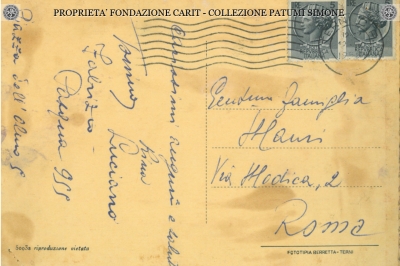 PROPRIETA' FONDAZIONE CARIT - COLLEZIONE PATUMI SIMONE
Carissimi auguri e saluti
Pina
Luciano
Fabrizio
Pasqua 955
Piazza dell'Olmo 5
Gentma famiglia
Mauri
Via Modica, 2
Roma
Sagla riproduzione vietata
FOTOTIPIA BERRETTA - TERNI